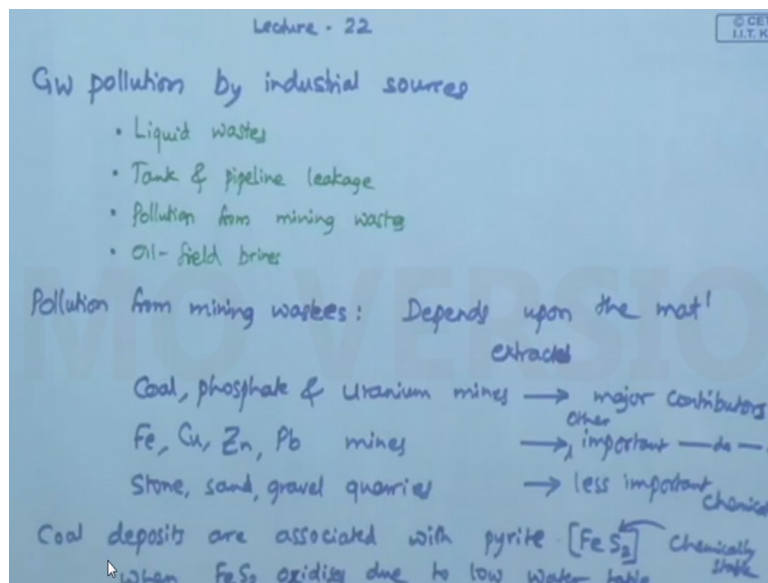 Lecture - 22
© CET
I.I.T. K
GW pollution by industrial sources
• Liquid wastes
• Tank & pipeline leakage
• Pollution from mining wastes
• Oil-field brines
MO VERSIO
Pollution from mining wastees: Depends upon the mat'l
extracted
Coal, phosphate & Uranium mines → major contributors
Fe, Cu, Zn, Pb mines → other important — do —
Stone, sand, gravel quarries → less important
Chemica
Coal deposits are associated with pyrite [FeS2] Chemically
stable
when FeS2 oxidises due to low water table